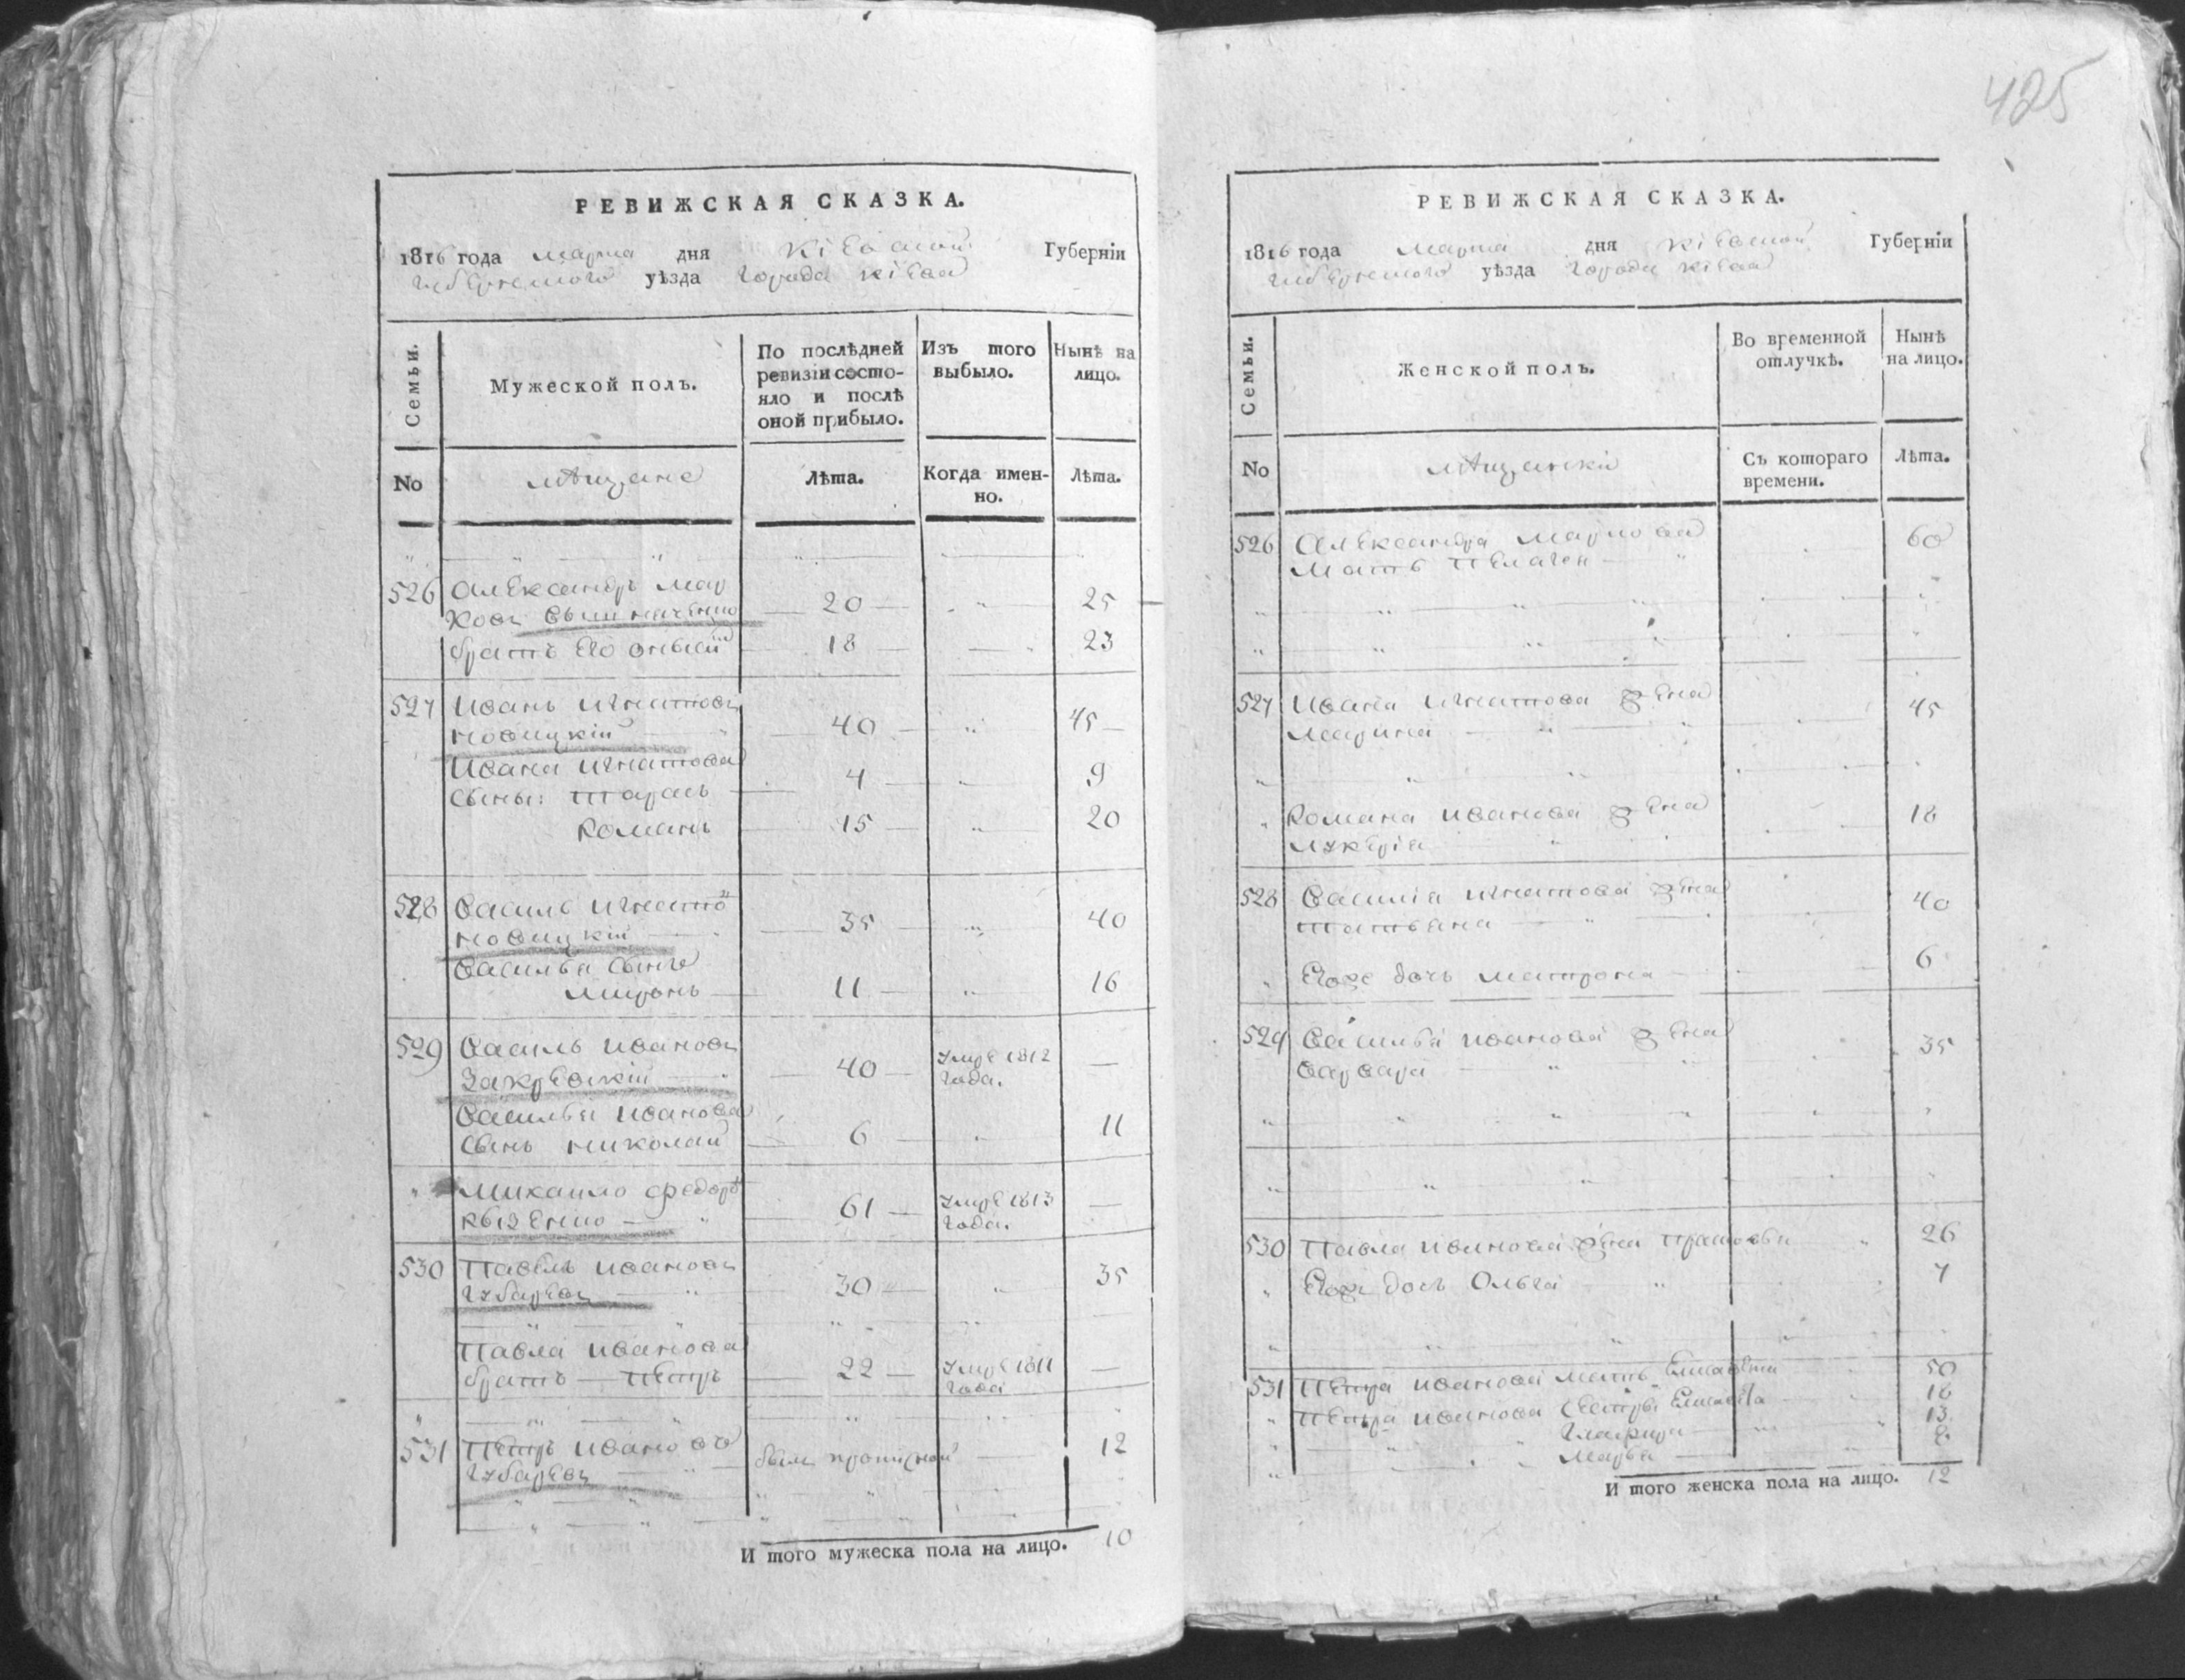 425
РЕВИЖСКАЯ СКАЗКА.
1816 года марта дня Кіевской Губерніи
губернскаго уѣзда города Кіева
Семьи.
Мужеской полъ.
По послѣдней ревизіи состо-
яло и послѣ
оной прибыло.
Изъ того
выбыло.
Нынѣ на
лицо.
No
мѣщане
Лѣта.
Когда имен-
но.
Лѣта.
526 Александръ Мар
20 25
братъ его 18 23
527 Иванъ Игнатовъ
Новицкій 40 45
Ивана Игнатова
сыны: Тарасъ 4 9
Романъ 15 20
528 Василь Игнато
Новицкій 35 40
Василья сынъ
Миронъ 11 16
529 Василь Ивановъ
Закревскій 40 умре 1812
года.
Василья Иванова
сынъ Николай 6 11
Михайло Федоро
Кызенко 61 умре 1813
года.
530 Павелъ Ивановъ
Губаревъ 30 35
Павла Иванова
братъ Петръ 22 умре 1811
года
531 Петръ Ивановъ
Губаревъ былъ прописной 12
И того мужеска пола на лицо. 10
РЕВИЖСКАЯ СКАЗКА.
1816 года марта дня Кіевской Губерніи
губернскаго уѣзда города Кіева
Семьи.
Женской полъ.
Во временной
отлучкѣ.
Нынѣ
на лицо.
No
мѣщанки
Съ котораго
времени.
Лѣта.
526 Александра Маркова 60
мать Пелагея
527 Ивана Игнатова жена
Марина 45
Романа Иванова жена 18
Лукерія
528 Василія Игнатова жена
Татьяна 40
Егоже дочь Матрона 6
529 Василья Иванова жена
Варвара 35
530 Павла Иванова жена 26
Егоже дочь Ольга 7
531 Петра Иванова мать 50
Петра Иванова сестры 18
Глафира 13
Марья 8
И того женска пола на лицо. 12